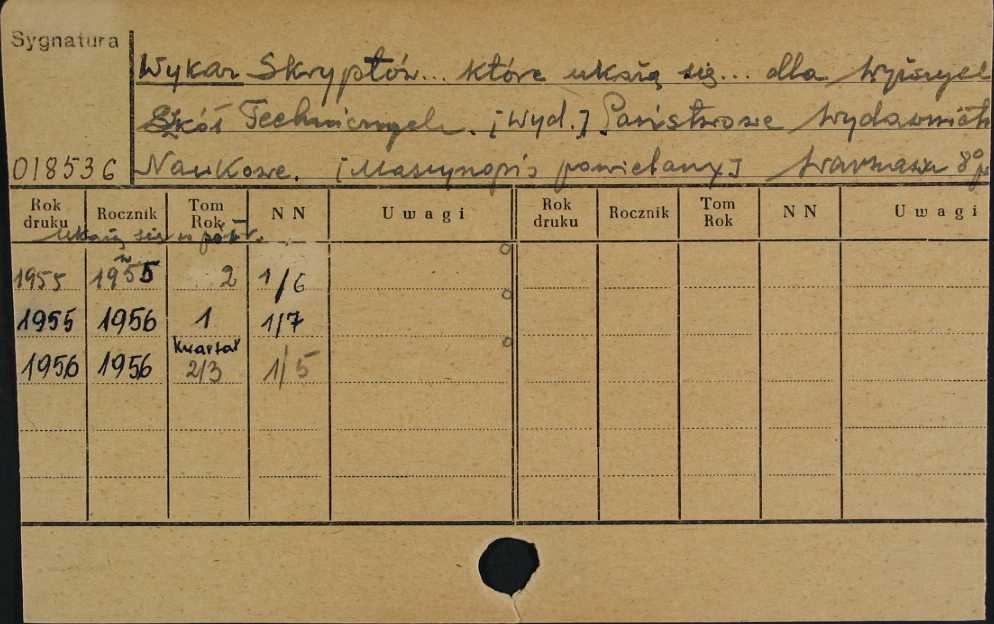 Sygnatura
Wykaz Skryptów... które ukażą się... dla Wyższych
Szkół Technicznych. [Wyd.] Państwowe Wydawnictw
018536 Naukowe. [Maszynopis powielany] Warszawa 8°
Rok druku Rocznik Tom Rok NN Uwagi Rok druku Rocznik Tom Rok NN Uwagi
ukaż się w
1955 1955 2 1/6
1955 1956 1 1/7
Kwartał
1956 1956 2/3 1/5